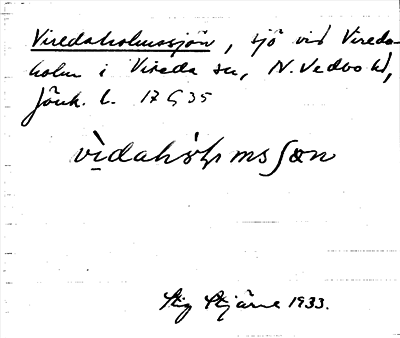 Viredaholmssjön, sjö vid Vireda-
holm i Vireda sn, N. Vedbo hd,
Jönk. l. 17 G 35
vìdahól̥msʃøn
Stig Stjärne 1933.